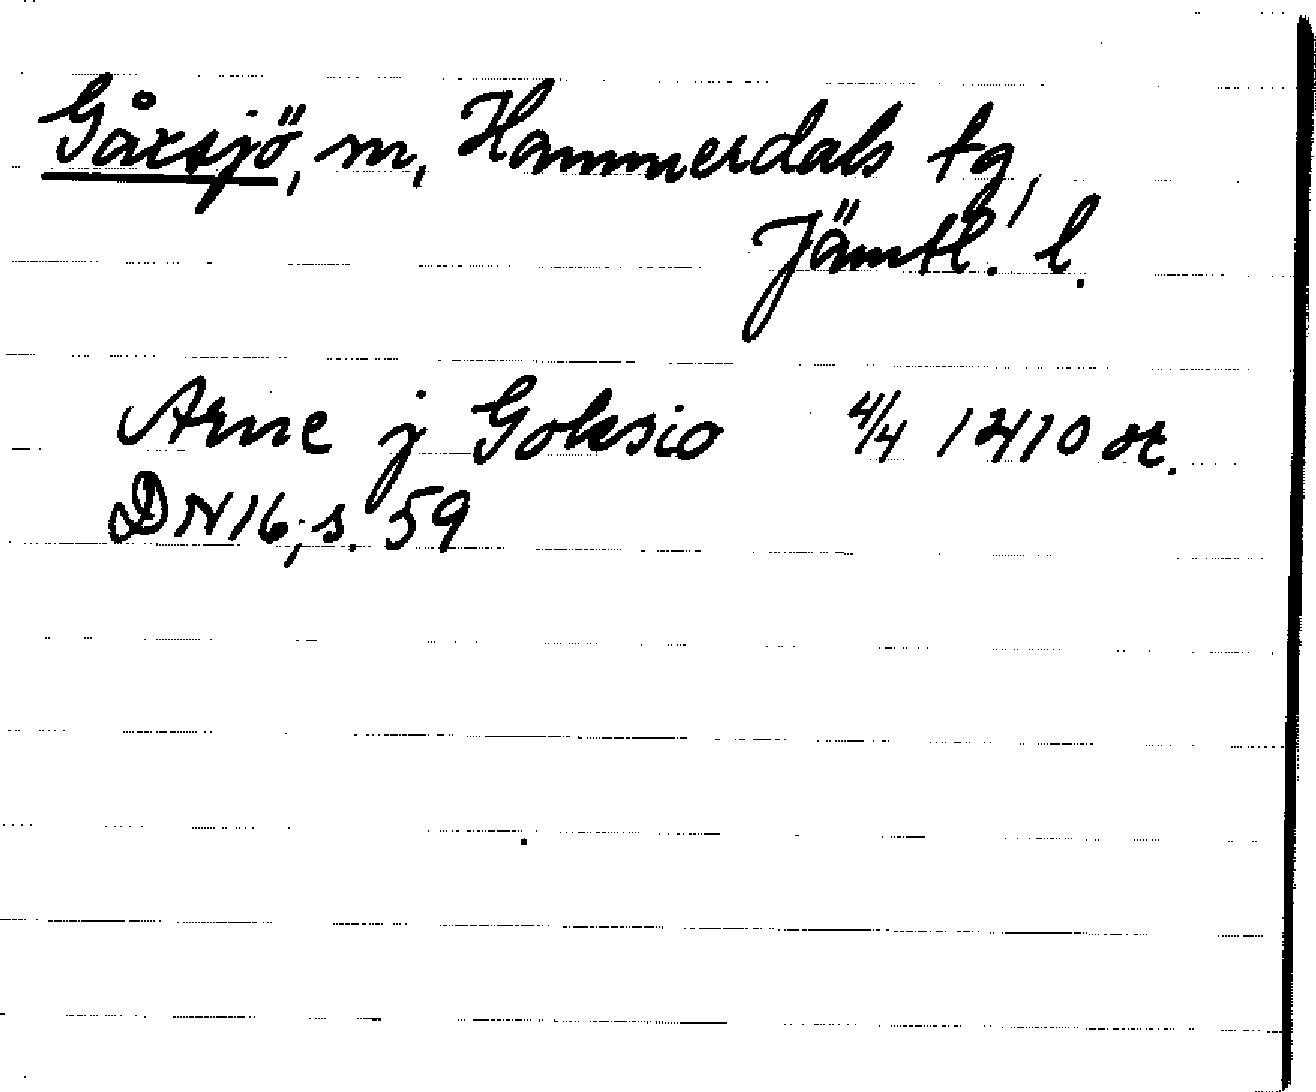 Gåxsjö, m, Hammerdals tg,
Jämtl. l.
Arne j Goksio 4/4 1410 st.
DN 16, s. 59